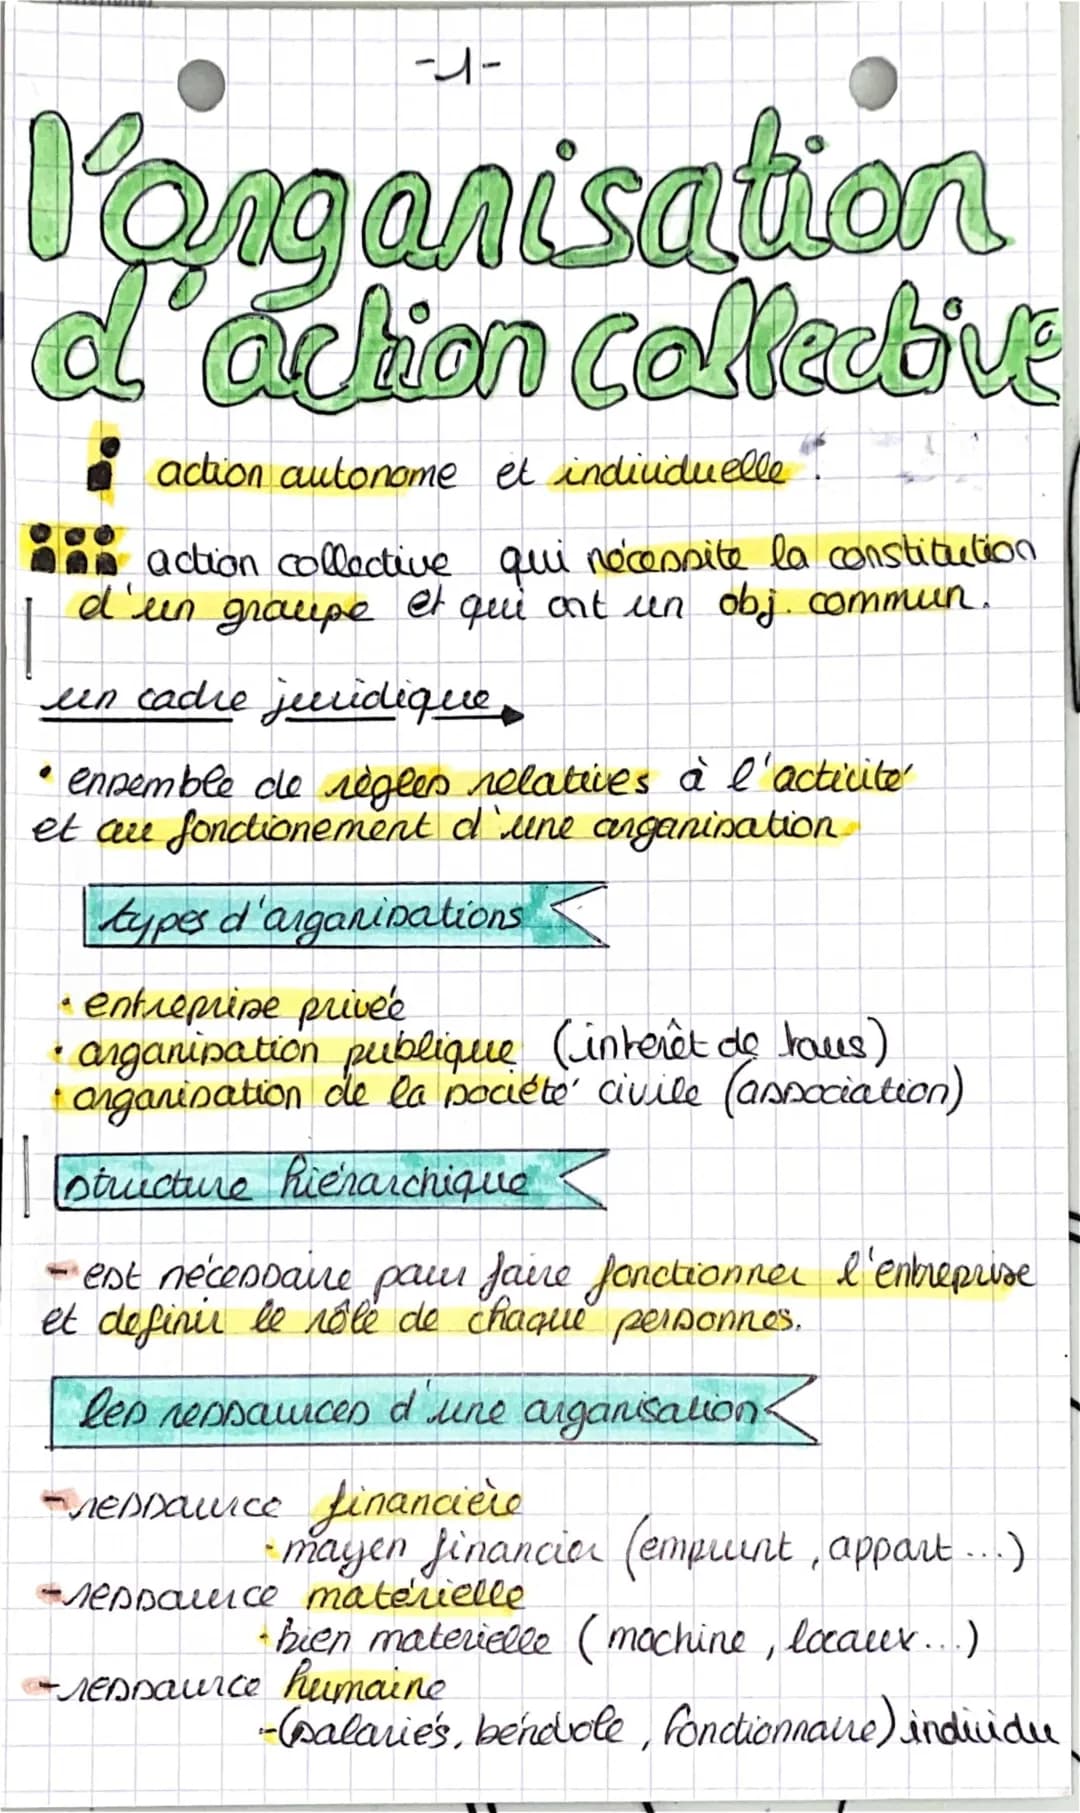 -1-
l'organisation
d'action collective
action autonome et individuelle.
action collective qui nécessite la constitution
d'un groupe et qui ont un obj. commun.
un cadre juridique
• ensemble de règles relatives à l'activité
et au fonctionement d'une organisation
types d'organisations
• entreprise privée
• organisation publique (interêt de tous)
• organisation de la société civile (association)
structure hiérarchique
- est nécessaire pour faire fonctionner l'entreprise
et definir le rôle de chaque personnes.
les ressources d'une organisation
- ressource financière
• moyen financier (emprunt, apport ...)
- ressource matérielle
• bien materielle ( machine, locaux...)
- ressource humaine
-(salariés, bénévole, fonctionnaire) individu